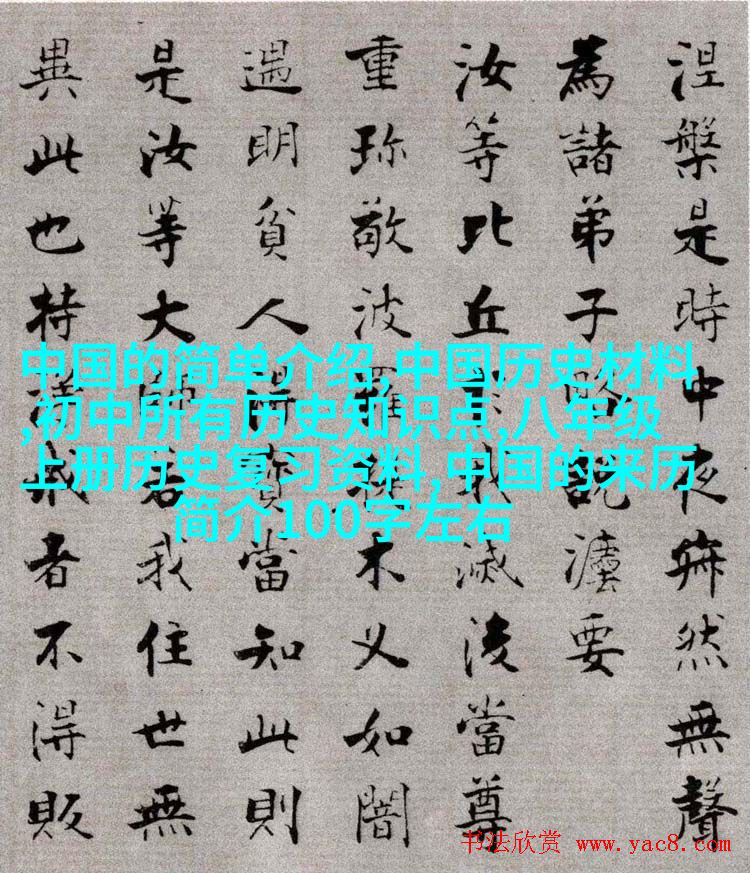 涅槃是時中夜寂然無聲
為諸弟子略說灋要
汝等比丘於我滅後當尊
重珎敬波羅提木叉如闇
遇明貧人得寶當知此則
是汝等大師若我住世無
異此也持淨戒者不得販
中国的简单介绍,中国历史材料
,初中所有历史知识点,八年级
上册历史复习资料,中国的来历
简介100字左右
书法欣赏 www.yac8.com